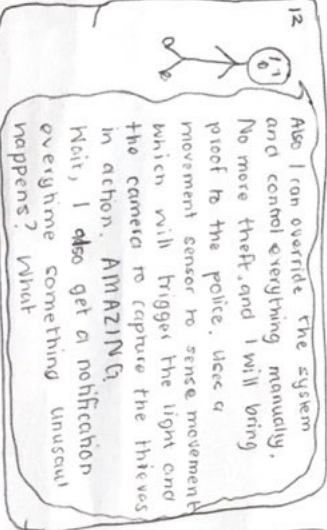 12
Also I can override the system
and control everything manually.
No more theft, and I will bring
proof to the police. Uses a
movement sensor to sense movement
which will trigger the light and
the camera to capture the thieves
in action. AMAZING
Wait, I also get a notification
everytime something unusaul
happens? What